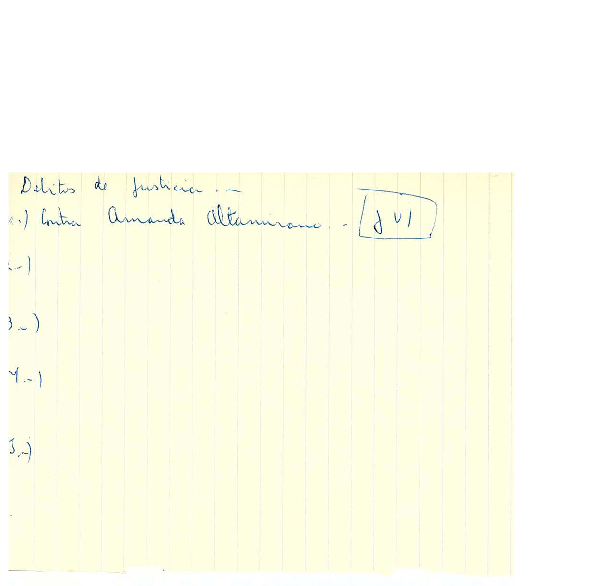 Delitos de Justicia.-
1.-) Contra Amanda Altamirano.- JVI
2.-)
3.-)
4.-)
5.-)